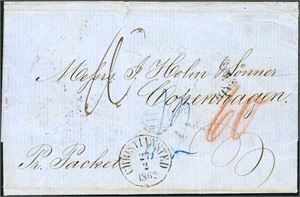 Messrs. J Holm & Sønner
Copenhagen.
60
Pr. Packet
CHRISTIANSTED
27
2
1862